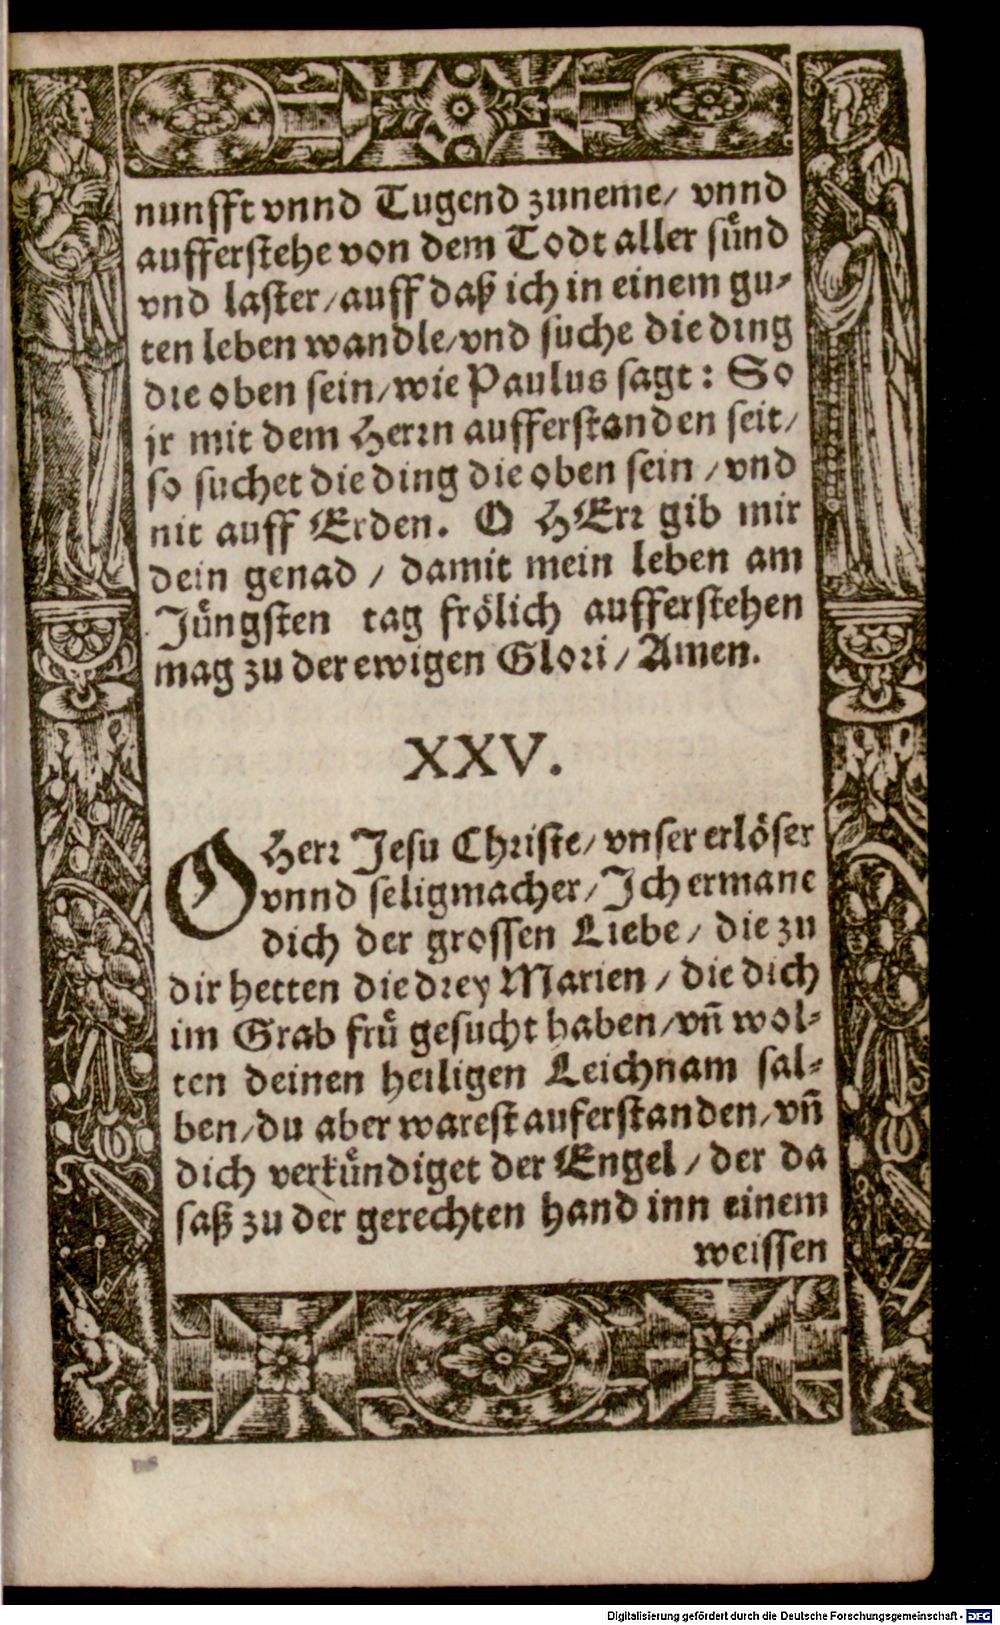 nunfft vnnd Tugend zuneme/ vnnd
aufferstehe von dem Todt aller sünd
vnd laster/ auff daß ich in einem gu-
ten leben wandle/ vnd suche die ding
die oben sein/ wie Paulus sagt: So
jr mit dem Herrn aufferstanden seit/
so suchet die ding die oben sein / vnd
nit auff Erden. O HErr gib mir
dein genad / damit mein leben am
Jüngsten tag frölich aufferstehen
mag zu der ewigen Glori/ Amen.
XXV.
O Herr Jesu Christe/ vnser erlöser
vnnd seligmacher/ Ich ermane
dich der grossen Liebe/ die zu
dir hetten die drey Marien / die dich
im Grab frü gesucht haben/ vñ wol-
ten deinen heiligen Leichnam sal-
ben/ du aber warest auferstanden/ vñ
dich verkündiget der Engel/ der da
saß zu der gerechten hand inn einem
weissen
Digitalisierung gefördert durch die Deutsche Forschungsgemeinschaft - DFG